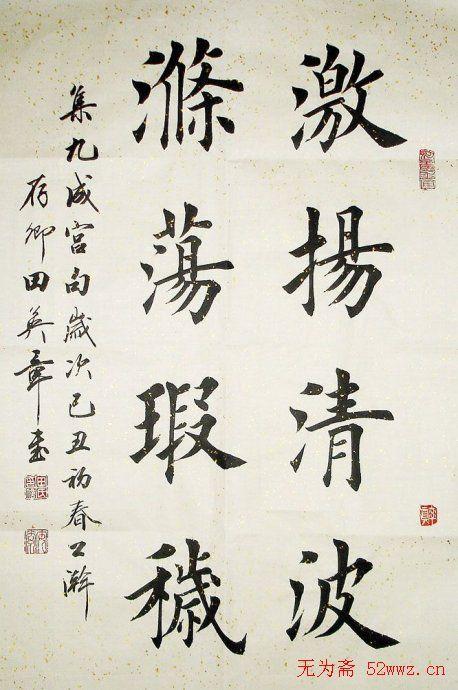 激揚清波
滌蕩瑕穢
集九成宮句歲次己丑初春澣
存卿田英章書
无为斋 52wwz.cn